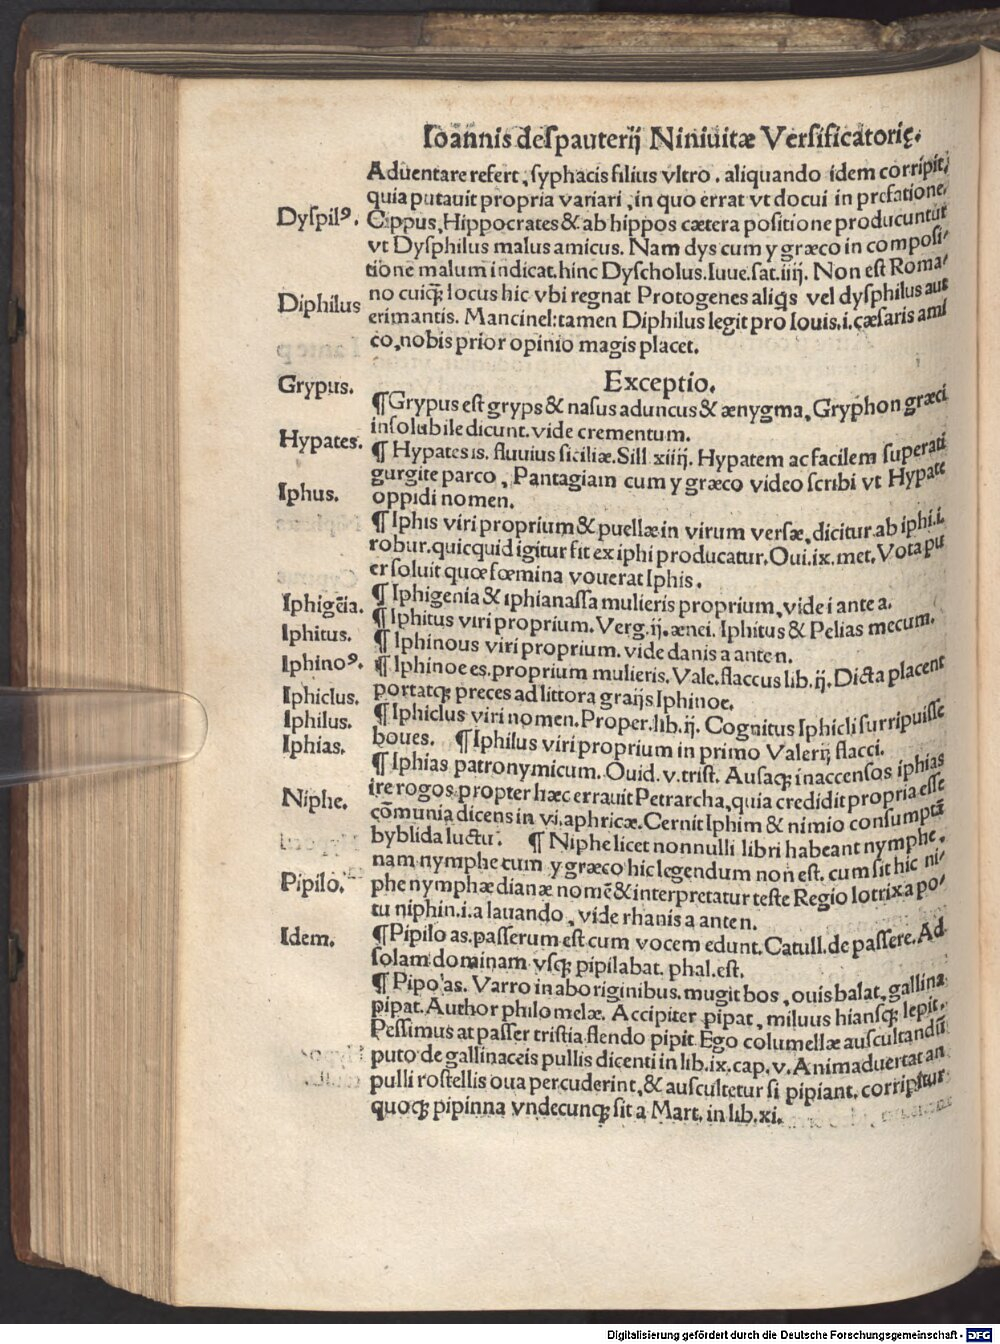 Ioannis deſpauterij Niniuitæ Verſificatorię.
Aduentare refert, ſyphacis filius vltro. aliquando idem corripit,
quia putauit propria variari, in quo errat vt docui in prefatione.
Dyſpilꝰ. Cippus, Hippocrates & ab hippos cætera poſitione producuntur
vt Dyſphilus malus amicus. Nam dys cum y græco in compoſi-
tione malum indicat. hinc Dyſcholus. Iuue. ſat. iiij. Non eſt Roma-
no cuiqꝫ locus hic vbi regnat Protogenes aliq̃s vel dyſphilus aut
Diphilus erimantis. Mancinel: tamen Diphilus legit pro Iouis. i. cæſaris ami
co, nobis prior opinio magis placet.
Exceptio.
Grypus. ¶ Grypus eſt gryps & naſus aduncus & ænygma, Gryphon græci
inſolubile dicunt. vide crementum.
Hypates. ¶ Hypates is. fluuius ſiciliæ. Sill xiiij. Hypatem ac facilem ſuperati
gurgite parco, Pantagiam cum y græco video ſcribi vt Hypate
oppidi nomen.
Iphus. ¶ Iphis viri proprium & puellæ in virum verſæ, dicitur ab iphi. i.
robur. quicquid igitur fit ex iphi producatur. Oui. ix. met. Vota pu
er ſoluit quæ fœmina vouerat Iphis.
Iphigēia. ¶ Iphigenia & iphianaſſa mulieris proprium, vide i ante a.
Iphitus. ¶ Iphitus viri proprium. Verg. ij. ænei. Iphitus & Pelias mecum.
¶ Iphinous viri proprium. vide danis a ante n.
Iphinoꝰ. ¶ Iphinoe es. proprium mulieris. Vale. flaccus lib. ij. Dicta placent
portatqꝫ preces ad littora graijs Iphinoe.
Iphiclus. ¶ Iphiclus viri nomen. Proper. lib. ij. Cognitus Iphicli ſurripuiſſe
Iphilus. boues. ¶ Iphilus viri proprium in primo Valerij flacci.
Iphias. ¶ Iphias patronymicum. Ouid. v. triſt. Auſaqꝫ in accenſos iphias
ire rogos. propter hæc errauit Petrarcha, quia credidit propria eſſe
Niphe. cōmunia dicens in vi. aphricæ. Cernit Iphim & nimio conſumptā
byblida luctu. ¶ Niphe licet nonnulli libri habeant nymphe,
nam nymphe cum y græco hic legendum non eſt. cum ſit hic ni-
Pipilo. phe nymphæ dianæ nomē & interpretatur teſte Regio lotrix a po-
tu niphin. i. a lauando, vide rhanis a ante n.
Idem. ¶ Pipilo as. paſſerum eſt cum vocem edunt. Catull. de paſſere. Ad
ſolam dominam vſqꝫ pipilabat. phal. eſt.
¶ Pipo as. Varro in aboriginibus. mugit bos, ouis balat, gallina
pipat. Author philomelæ. Accipiter pipat, miluus hianſqꝫ lepit.
Peſſimus at paſſer triſtia flendo pipit. Ego columellæ auſcultandū
puto de gallinaceis pullis dicenti in lib. ix. cap. v. Animaduertat an
pulli roſtellis oua percuderint, & auſcultetur ſi pipiant. corripitur
quoqꝫ pipinna vndecunqꝫ ſit a Mart. in lib. xi.
Digitalisierung gefördert durch die Deutsche Forschungsgemeinschaft - DFG